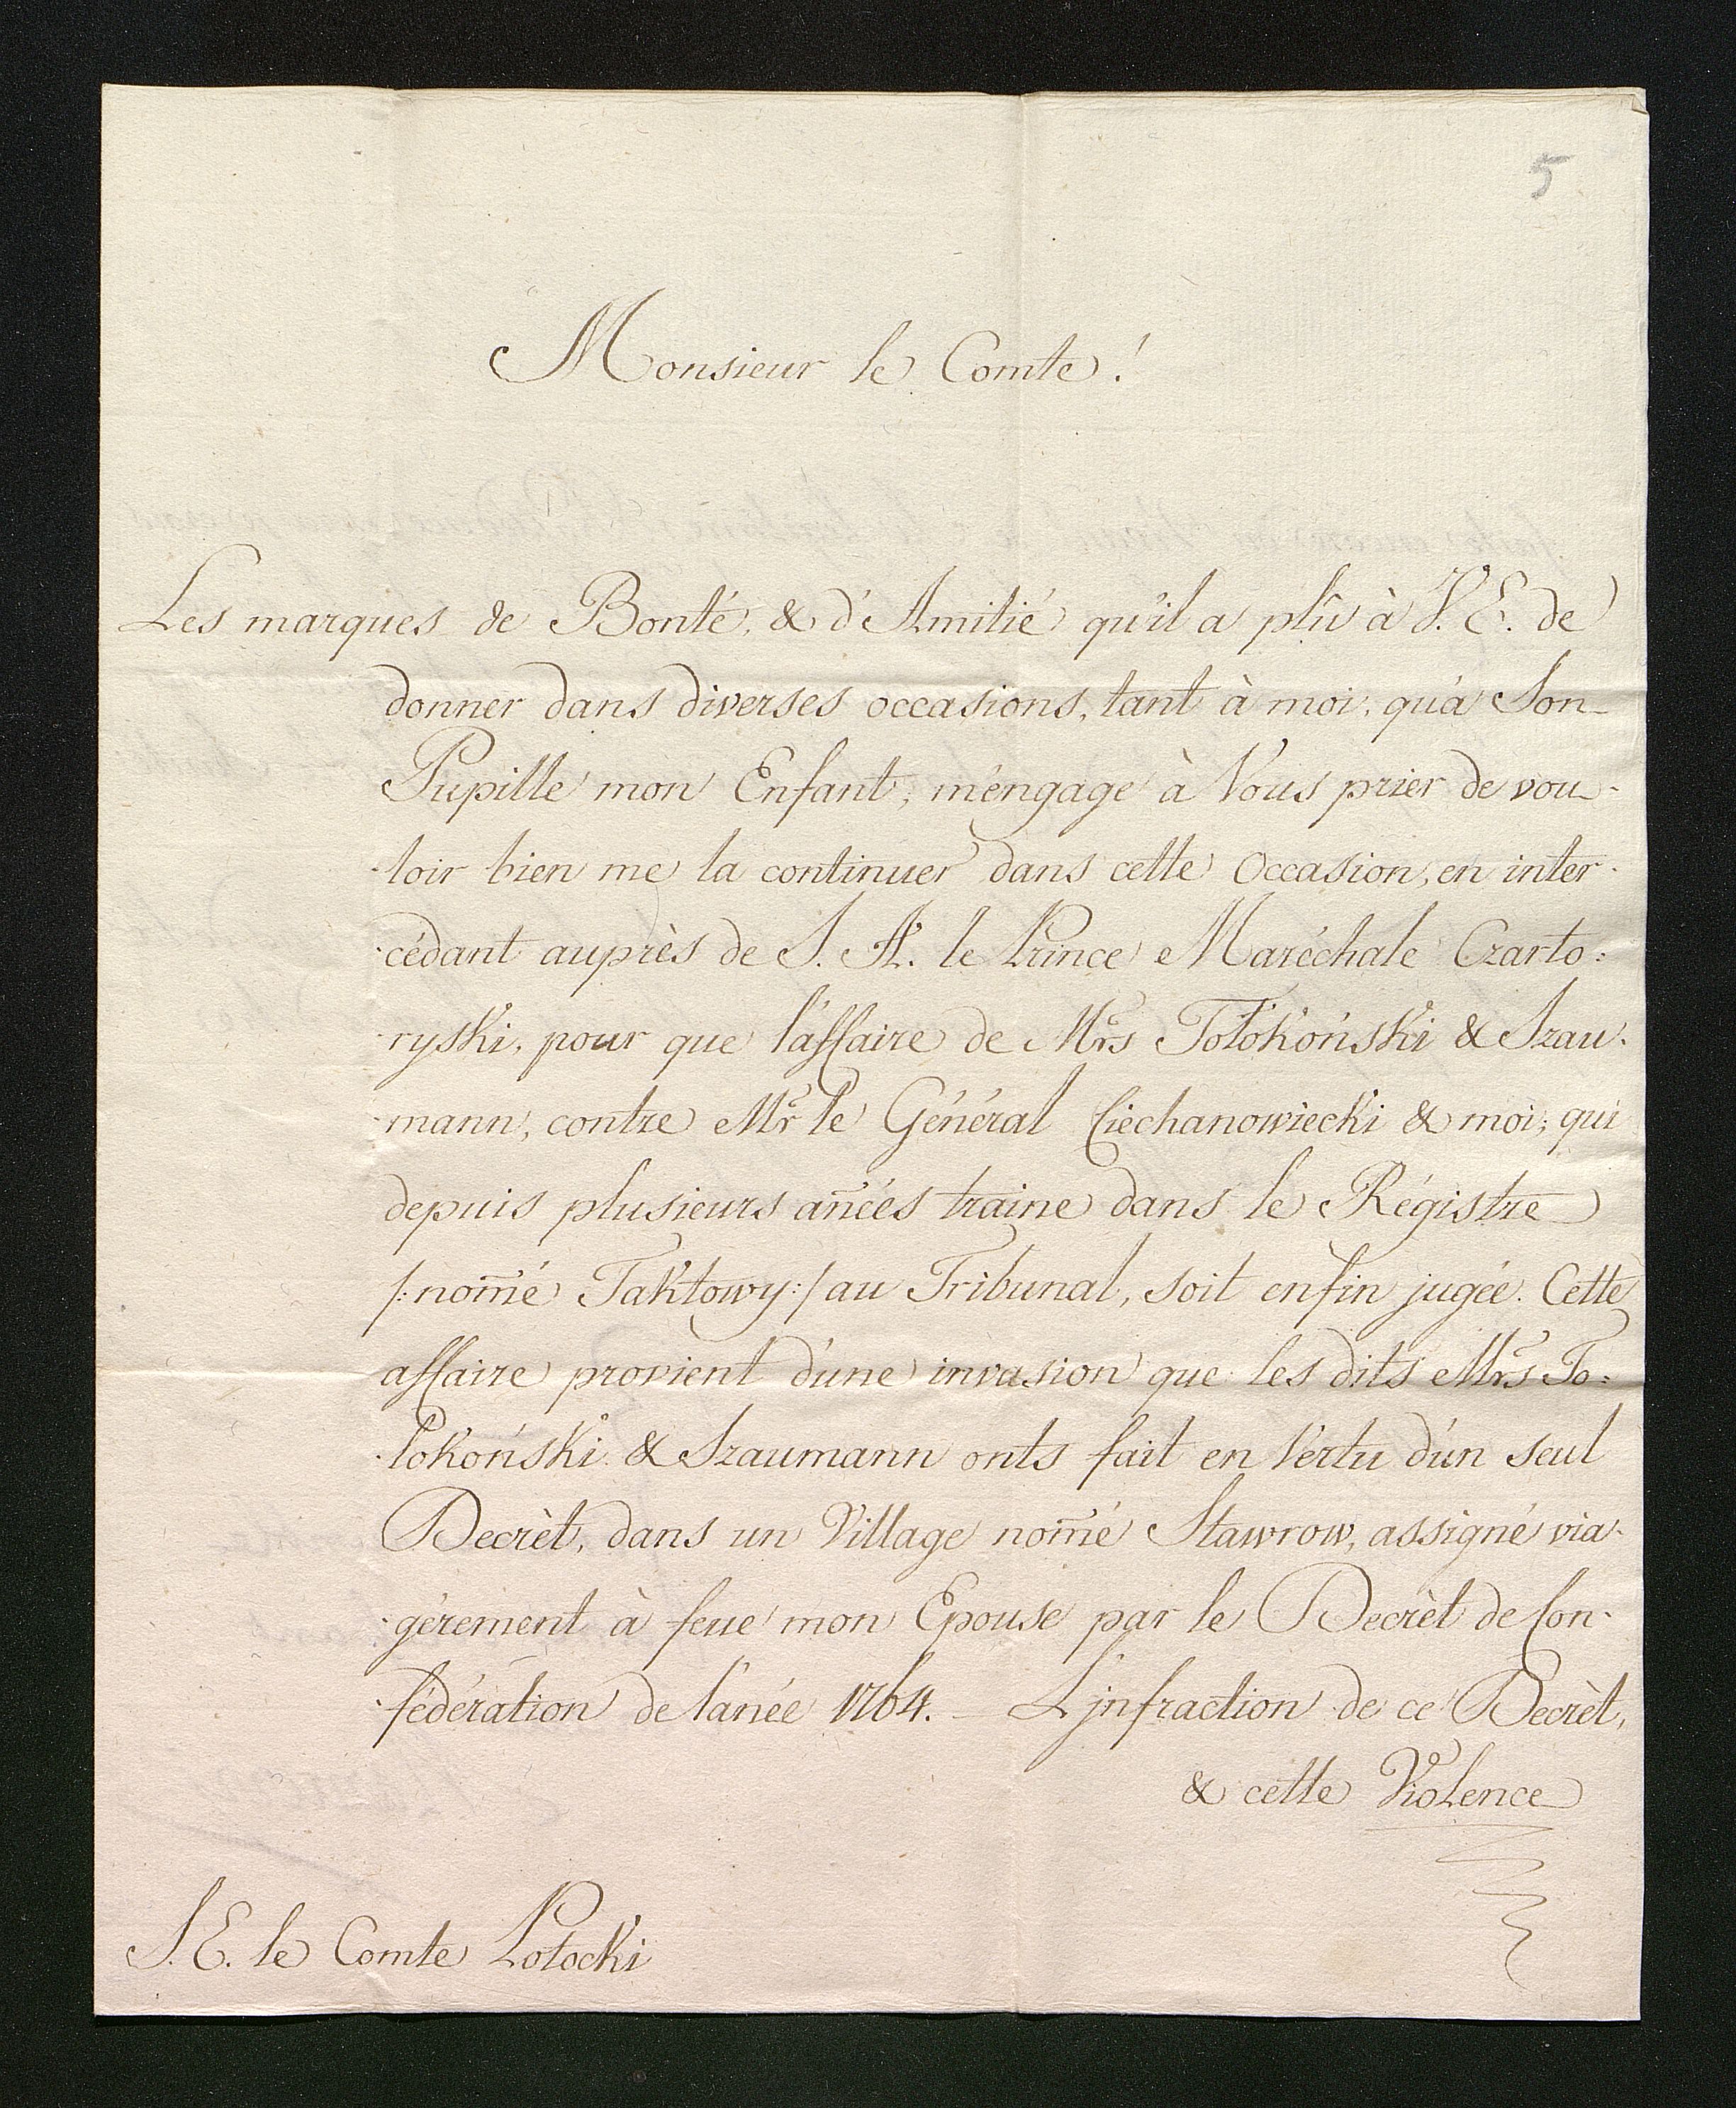 5
Monsieur le Comte!
Les marques de Bonté, & d'Amitié qu'il a plû à V. E. de
donner dans diverses occasions, tant à moi, qu'à Son
Pupille mon Enfant, m'engage à Vous prier de vou-
-loir bien me la continuer dans cette Occasion, en inter-
-cédant auprès de S. A. le Prince Maréchale Czarto=
-ryski, pour que l'affaire de Mrs Tołokoński & Szau-
-mann, contre Mr le Général Ciechanowiecki & moi; qui
depuis plusieurs anēés traine dans le Régistre
/: nom̄é Taktowy :/ au Tribunal, soit enfin jugée. Cette
affaire provient d'une invasion que les dits Mrs To=
-łokoński & Szaumann onts fait en Vertu d'un seul
Decrèt, dans un Village nom̄é Stawrow, assigné via-
-gérement à feue mon Epouse par le Decrèt de Con-
-fédération de l'anée 1764. – L'jnfraction de ce Decrèt,
& cette Violence
S. E. le Comte Potocki